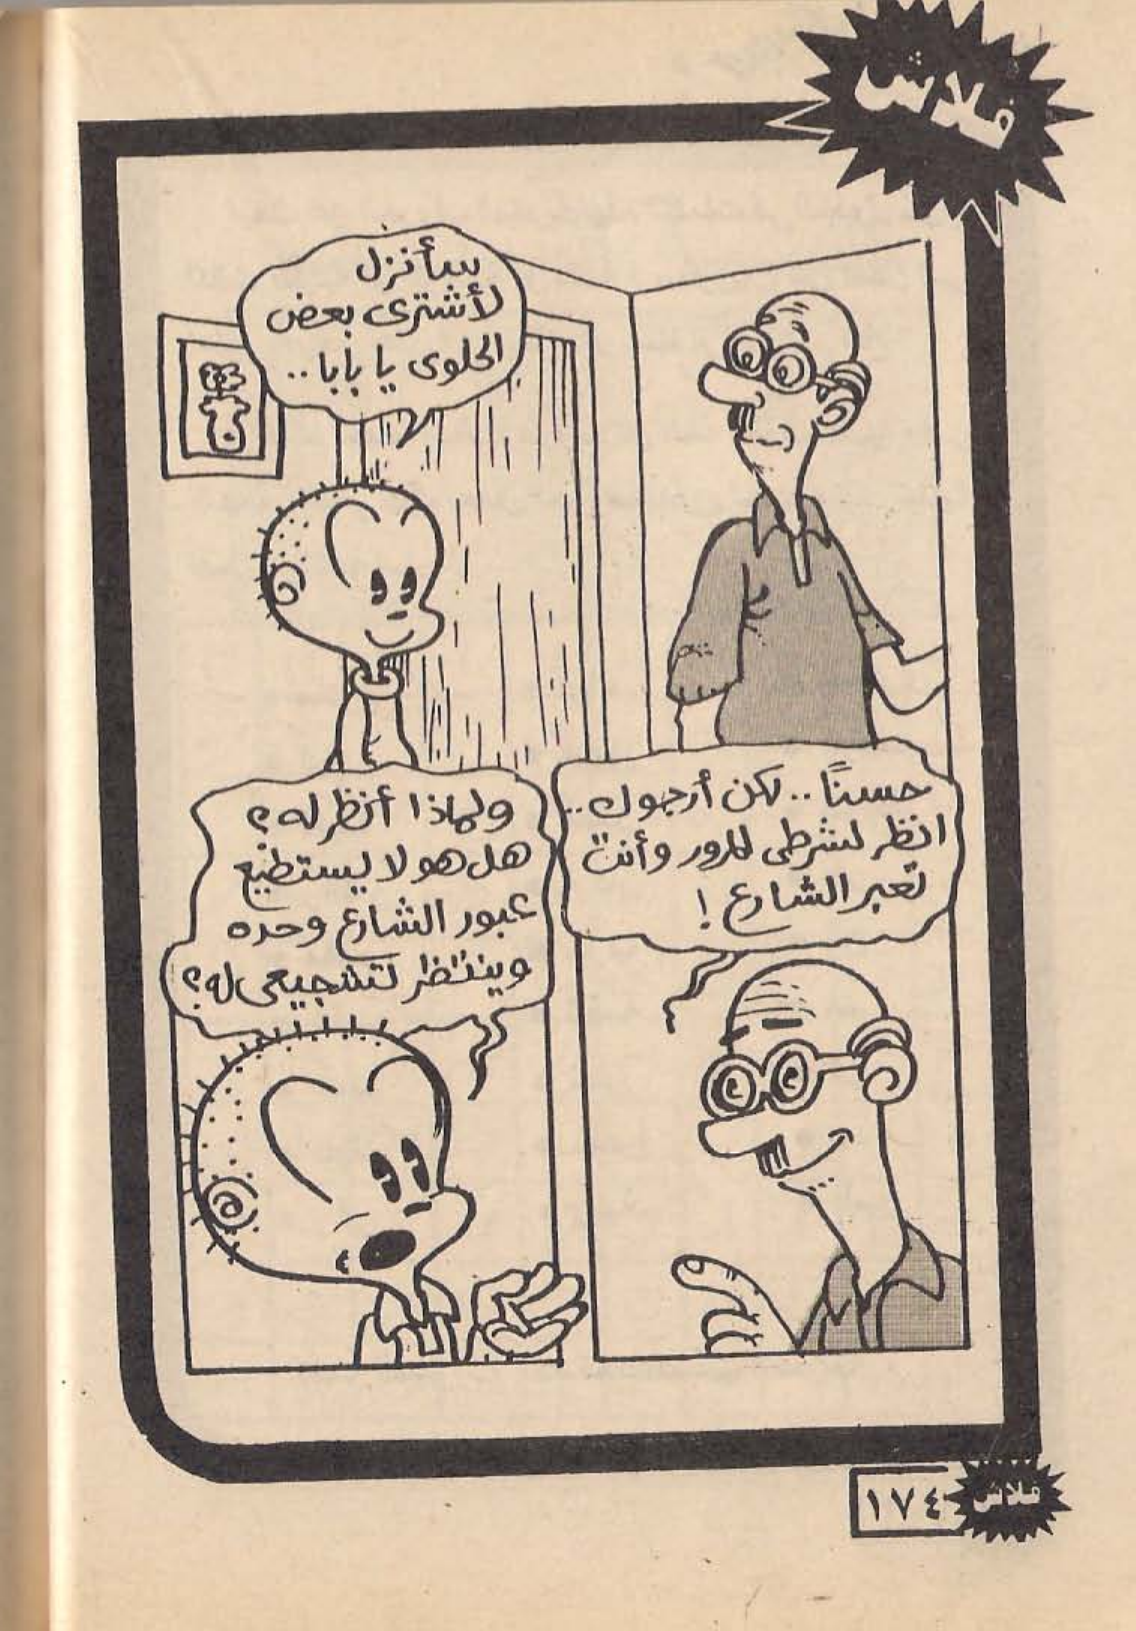 فلاش
سأنزل
لأشترى بعض
الحلوى يا بابا..
حسنًا.. لكن أرجوك..
انظر لشرطى المرور وأنت
تعبر الشارع !
ولماذا أنظر له؟
هل هو لا يستطيع
عبور الشارع وحده
وينتظر تشجيعى له؟
١٧٤
فلاش